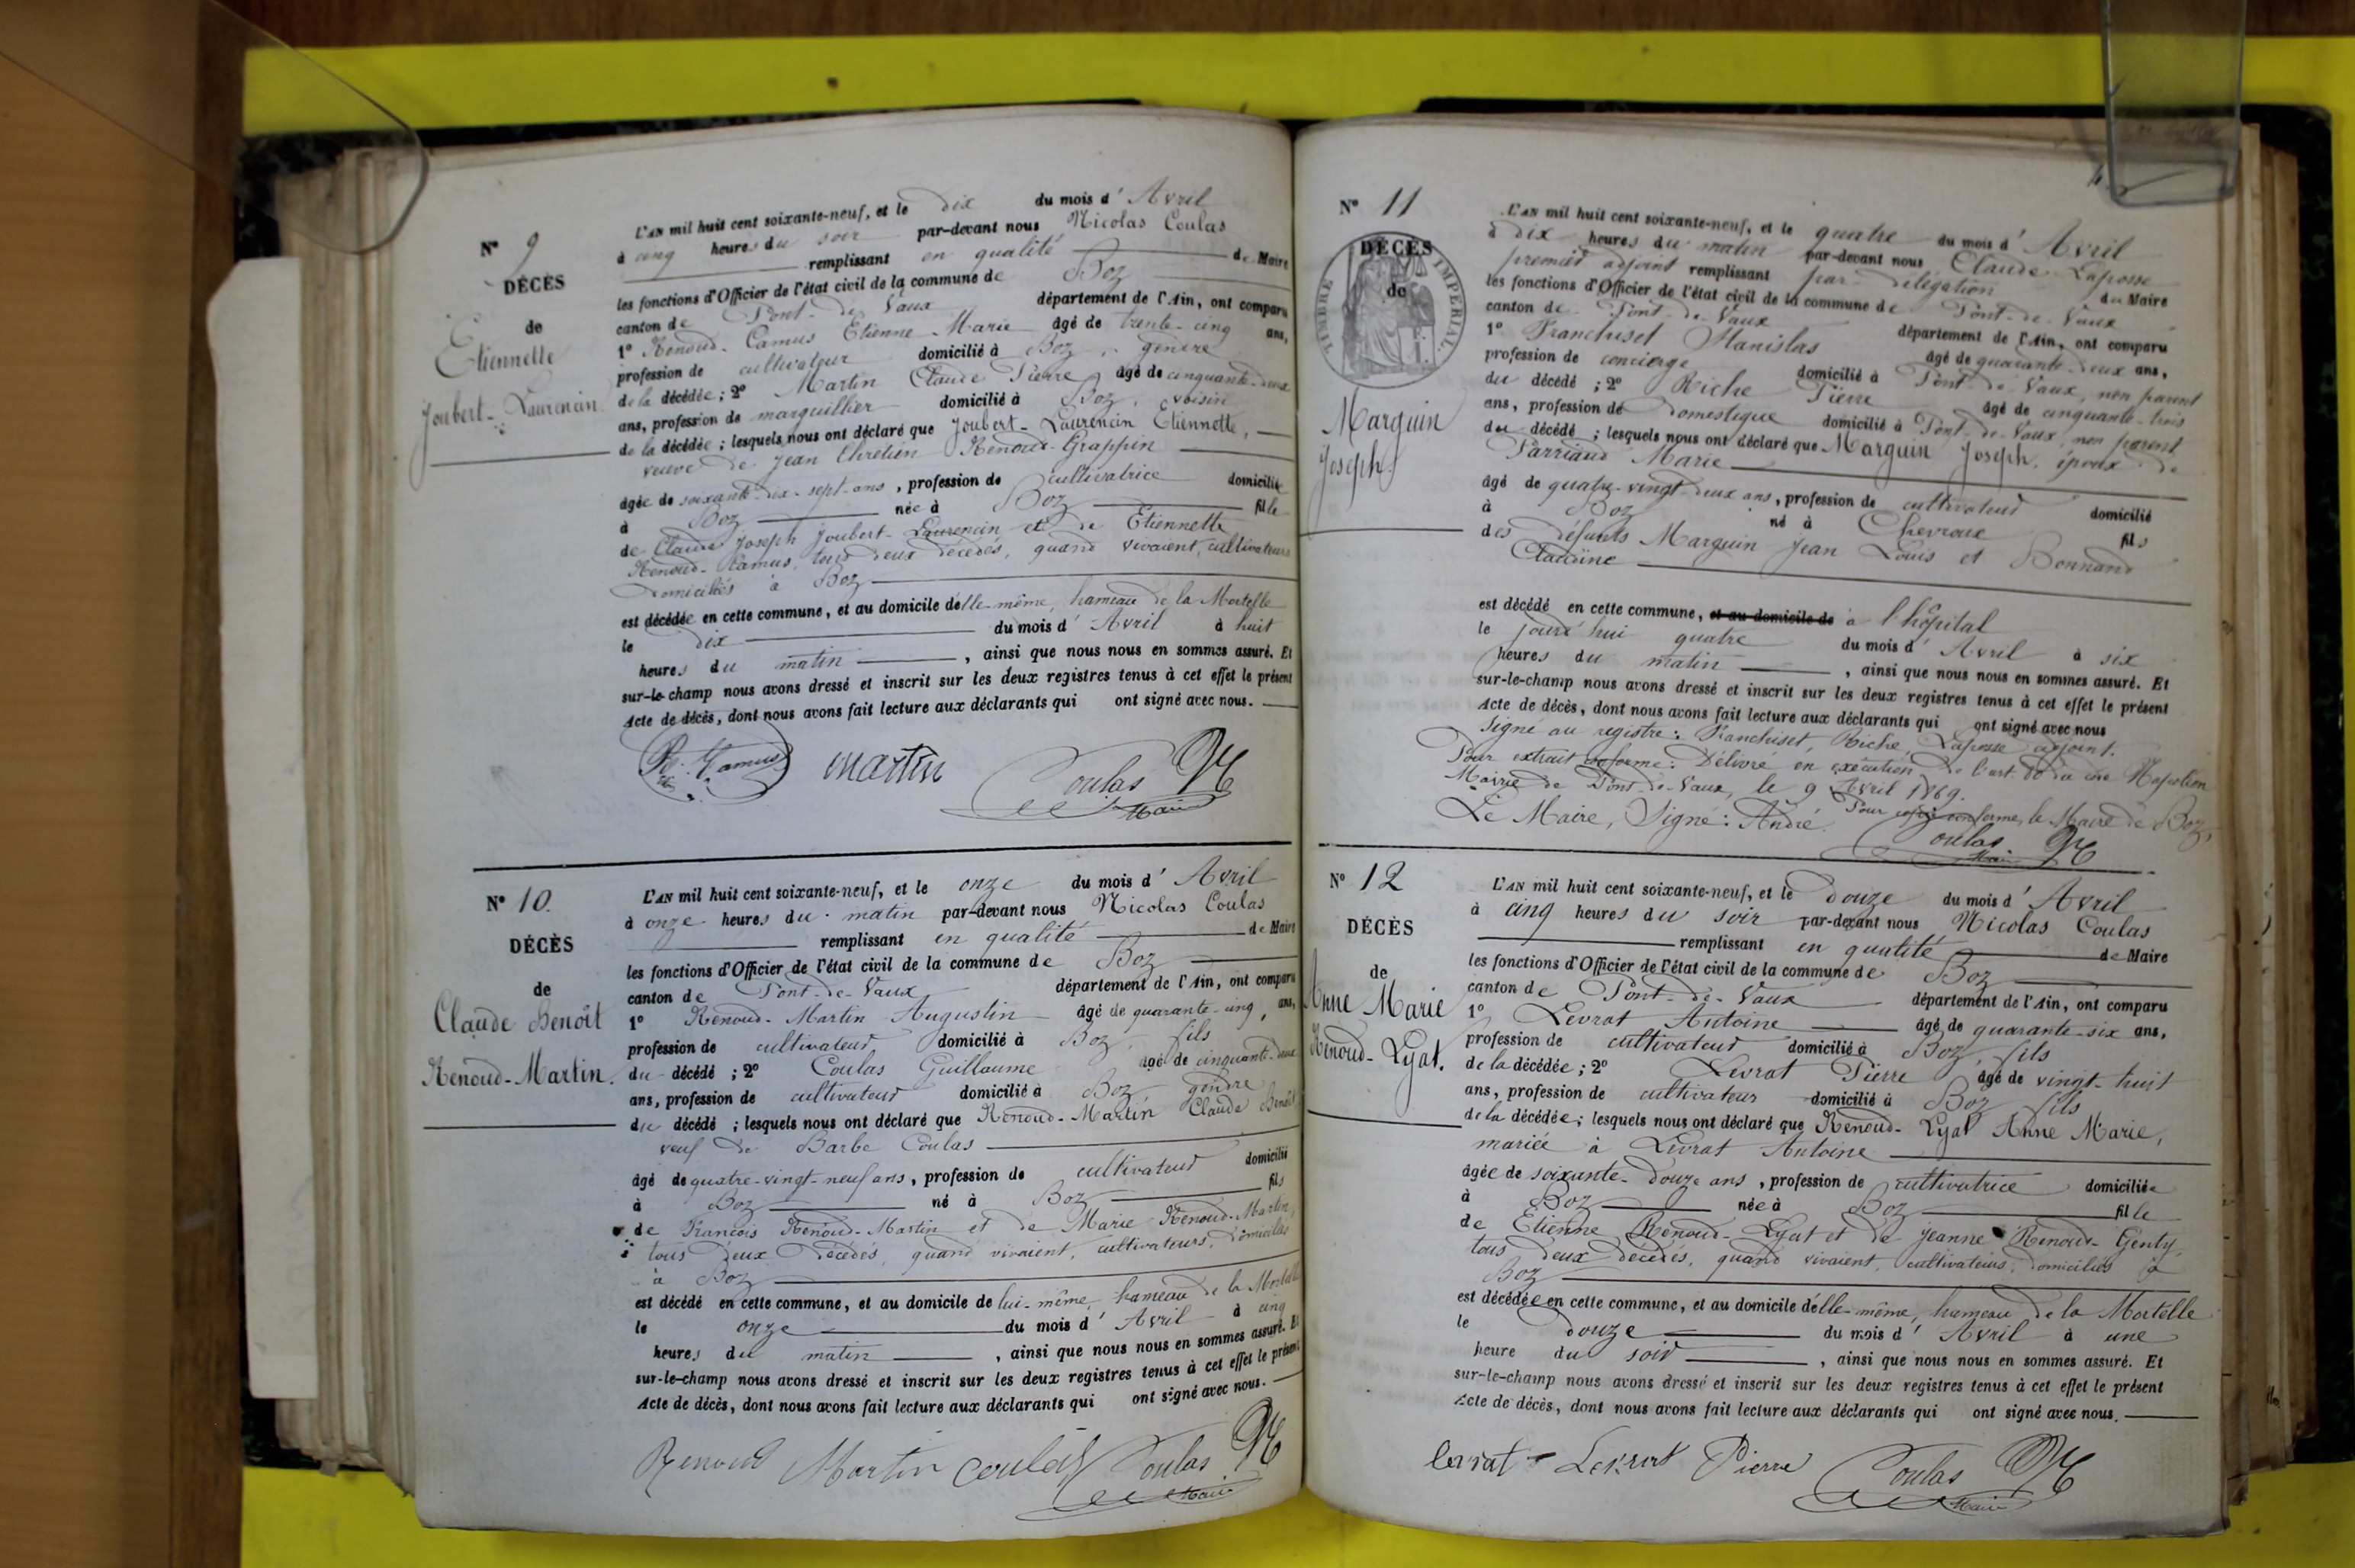 N° 9
DÉCÈS
de
Etiennette
Joubert-Laurencin
L'AN mil huit cent soixante-neuf, et le dix du mois d' Avril
à cinq heures du soir par-devant nous Nicolas Coulas
remplissant en qualité de Maire
les fonctions d'Officier de l'état civil de la commune de Boz
canton de Pont-de-Vaux département de l'Ain, ont comparu
1° Renoud-Camus Etienne Marie âgé de trente-cinq ans,
profession de cultivateur domicilié à Boz, gendre
de la décédée ; 2° Martin Claude Pierre, âgé de cinquante-deux
ans, profession de marguillier domicilié à Boz, voisin
de la décédée ; lesquels nous ont déclaré que Joubert-Laurencin Etiennette,
veuve de Jean Chrétien Renoud-Grappin
âgée de soixante-dix-sept ans, profession de cultivatrice domiciliée
à Boz née à Boz fille
de Claude Joseph Joubert-Laurencin et de Etiennette
Renoud-Camus, tous deux décédés, quand vivaient, cultivateurs
domiciliés à Boz
est décédée en cette commune, et au domicile d'elle-même, hameau de la Mortelle
le dix du mois d' Avril à huit
heures du matin, ainsi que nous nous en sommes assuré. Et
sur-le-champ nous avons dressé et inscrit sur les deux registres tenus à cet effet le présent
Acte de décès, dont nous avons fait lecture aux déclarants qui ont signé avec nous.
R. Camus martin Coulas
Maire
N° 10.
DÉCÈS
de
Claude Benoît
Renoud-Martin.
L'AN mil huit cent soixante-neuf, et le onze du mois d' Avril
à onze heures du matin par-devant nous Nicolas Coulas
remplissant en qualité de Maire
les fonctions d'Officier de l'état civil de la commune de Boz
canton de Pont-de-Vaux département de l'Ain, ont comparu
1° Renoud-Martin Augustin âgé de quarante-cinq, ans,
profession de cultivateur domicilié à Boz, fils
du décédé ; 2° Coulas Guillaume âgé de cinquante-deux
ans, profession de cultivateur domicilié à Boz gendre
du décédé ; lesquels nous ont déclaré que Renoud-Martin Claude Benoît
veuf de Barbe Coulas
âgé de quatre-vingt-neuf ans, profession de cultivateur domicilié
à Boz né à Boz fils
de François Renoud-Martin et de Marie Renoud-Martin,
tous deux décédés, quand vivaient, cultivateurs, domiciliés
à Boz
est décédé en cette commune, et au domicile de lui-même, hameau de la Mortelle
le onze du mois d' Avril à cinq
heures du matin, ainsi que nous nous en sommes assuré. Et
sur-le-champ nous avons dressé et inscrit sur les deux registres tenus à cet effet le présent
Acte de décès, dont nous avons fait lecture aux déclarants qui ont signé avec nous.
Renoud Martin coulas Coulas
Maire
N° 11
DÉCÈS
de
TIMBRE IMPERIAL
Marguin
Joseph
L'AN mil huit cent soixante-neuf, et le quatre du mois d' Avril
à dix heures du matin par-devant nous Claude Laposse
premier adjoint remplissant par délégation du Maire
les fonctions d'Officier de l'état civil de la commune de Pont-de-Vaux
canton de Pont-de-Vaux département de l'Ain, ont comparu
1° Franchiset Stanislas âgé de quarante-deux ans,
profession de concierge domicilié à Pont-de-Vaux, non parent
du décédé ; 2° Riche Pierre âgé de cinquante-trois
ans, profession de domestique domicilié à Pont-de-Vaux, non parent
du décédé ; lesquels nous ont déclaré que Marguin Joseph, époux de
Parriaud Marie
âgé de quatre-vingt-deux ans, profession de cultivateur domicilié
à Boz né à Chevroux fils
des défunts Marguin Jean Louis et Bonnand
Claudine
est décédé en cette commune, et au domicile de à l'hôpital
le jourd'hui quatre du mois d' Avril à six
heures du matin, ainsi que nous nous en sommes assuré. Et
sur-le-champ nous avons dressé et inscrit sur les deux registres tenus à cet effet le présent
Acte de décès, dont nous avons fait lecture aux déclarants qui ont signé avec nous
Signé au registre : Franchiset, Riche, Laposse adjoint.
Pour extrait conforme : Délivré en exécution de l'art. 80 du code Napoléon
Mairie de Pont-de-Vaux, le 9 Avril 1869.
Le Maire, Signé : André. Pour copie conforme, le Maire de Boz,
Coulas
Maire
N° 12
DÉCÈS
de
Anne Marie
Renoud-Lyat.
L'AN mil huit cent soixante-neuf, et le douze du mois d' Avril
à cinq heures du soir par-devant nous Nicolas Coulas
remplissant en qualité de Maire
les fonctions d'Officier de l'état civil de la commune de Boz
canton de Pont-de-Vaux département de l'Ain, ont comparu
1° Levrat Antoine âgé de quarante-six ans,
profession de cultivateur domicilié à Boz, fils
de la décédée ; 2° Levrat Pierre âgé de vingt-huit
ans, profession de cultivateur domicilié à Boz fils
de la décédée ; lesquels nous ont déclaré que Renoud-Lyat Anne Marie,
mariée à Levrat Antoine
âgée de soixante-douze ans, profession de cultivatrice domiciliée
à Boz née à Boz fille
de Etienne Renoud-Lyat et de Jeanne Renoud-Genty,
tous deux décédés, quand vivaient, cultivateurs, domiciliés à
Boz
est décédée en cette commune, et au domicile d'elle-même, hameau de la Mortelle
le douze du mois d' Avril à une
heure du soir, ainsi que nous nous en sommes assuré. Et
sur-le-champ nous avons dressé et inscrit sur les deux registres tenus à cet effet le présent
Acte de décès, dont nous avons fait lecture aux déclarants qui ont signé avec nous.
levrat Levrat Pierre Coulas
Maire